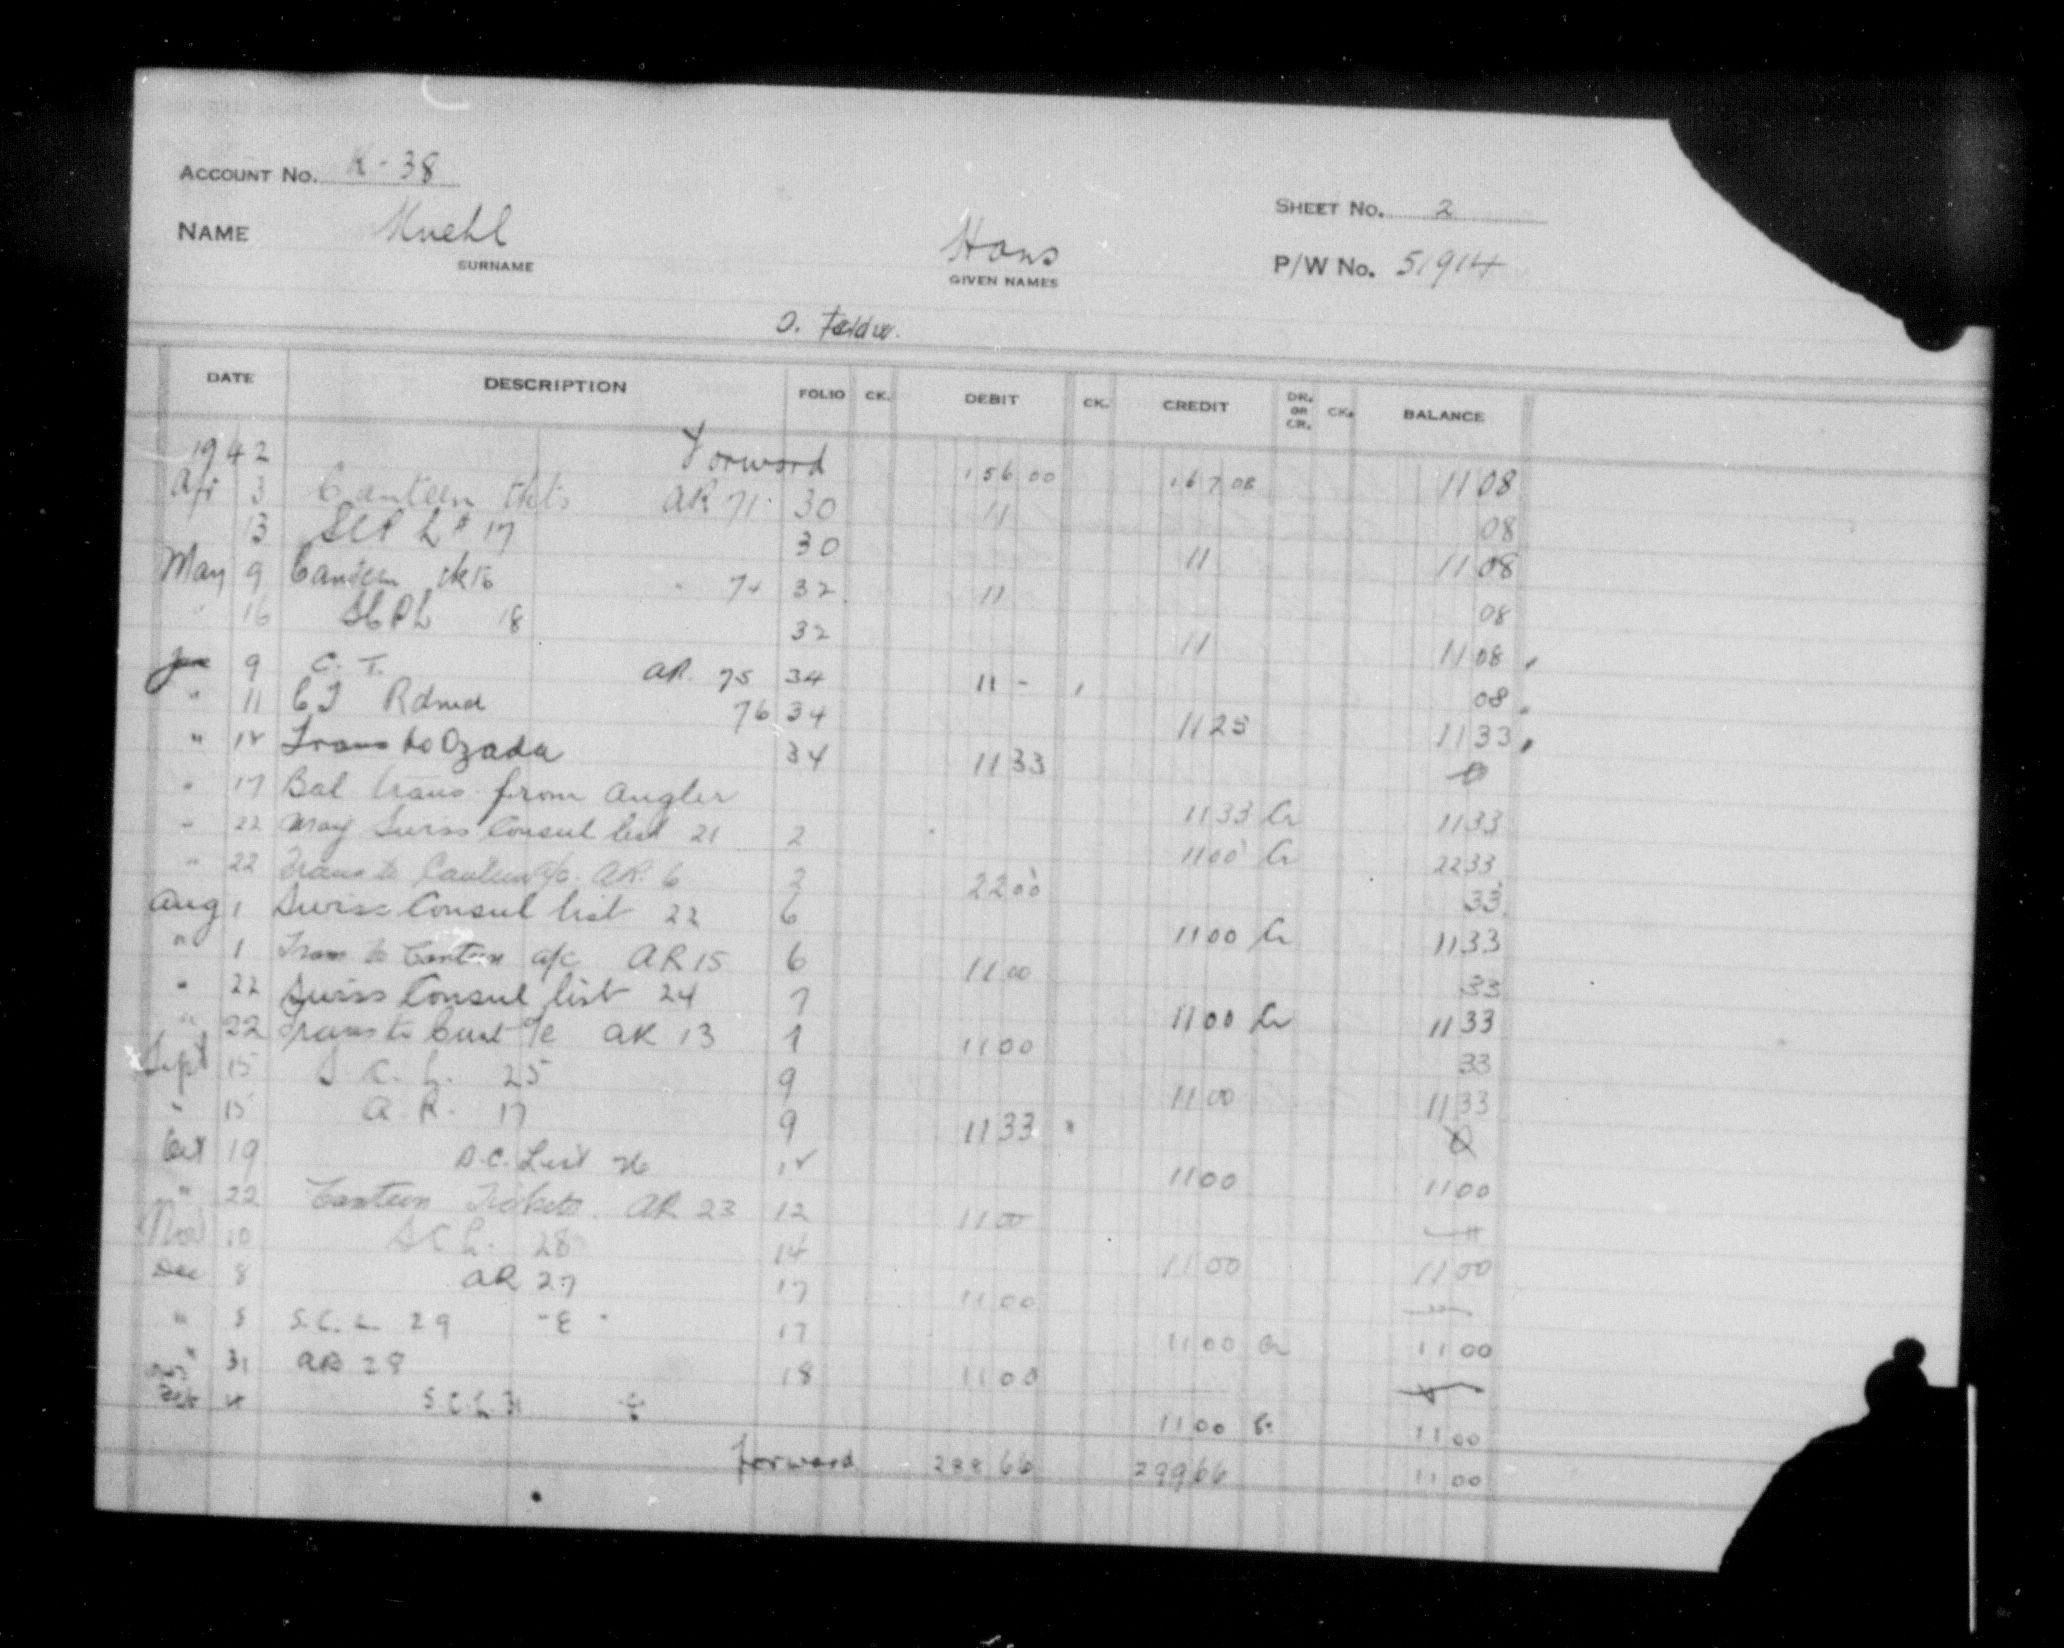 ACCOUNT NO. K-38
SHEET NO. 2
NAME Kuehl Hans P/W No. 51914
SURNAME GIVEN NAMES
O.
DATE DESCRIPTION FOLIO CK. DEBIT CK. CREDIT DR. OR CR. CK. BALANCE
1942 Forward 156 00 167 08 11 08
Apr 3 Canteen tkts AR 71 30 11 08
13 SCP L# 17 30 11 11 08
May 9 Canteen tkts " 74 32 11 08
" 16 SCPL 18 32 11 11 08
June 9 C. T. AR. 75 34 11 - 08
" 11 CT Rdmd 76 34 11 25 11 33
" 12 Trans to Ozada 34 11 33 0
" 17 Bal trans from Angler 11 33 Cr 11 33
" 22 May Swiss Consul list 21 2 11 00 Cr 22 33
" 22 Trans to Canteen a/c. AR. 6 2 22 00 33
Aug 1 Swiss Consul list 22 6 11 00 Cr 11 33
" 1 Trans to Canteen a/c AR 15 6 11 00 33
" 22 Swiss Consul list 24 7 11 00 Cr 11 33
" 22 Trans to Cant a/c AR 13 7 11 00 33
Sept 15 S. C. L. 25 9 11 00 11 33
" 15 A. R. 17 9 11 33 0
Oct 19 S.C. List 26 12 11 00 11 00
" 22 Canteen Tickets. AR 23 12 11 00
Nov 10 SCL. 28 14 11 00 11 00
Dec 8 AR 27 17 11 00
" 8 S.C.L. 29 -E- 17 11 00 Cr 11 00
" 31 AR 28 18 11 00
S.C.L 31 11 00 11 00
forward 288 66 299 66 11 00